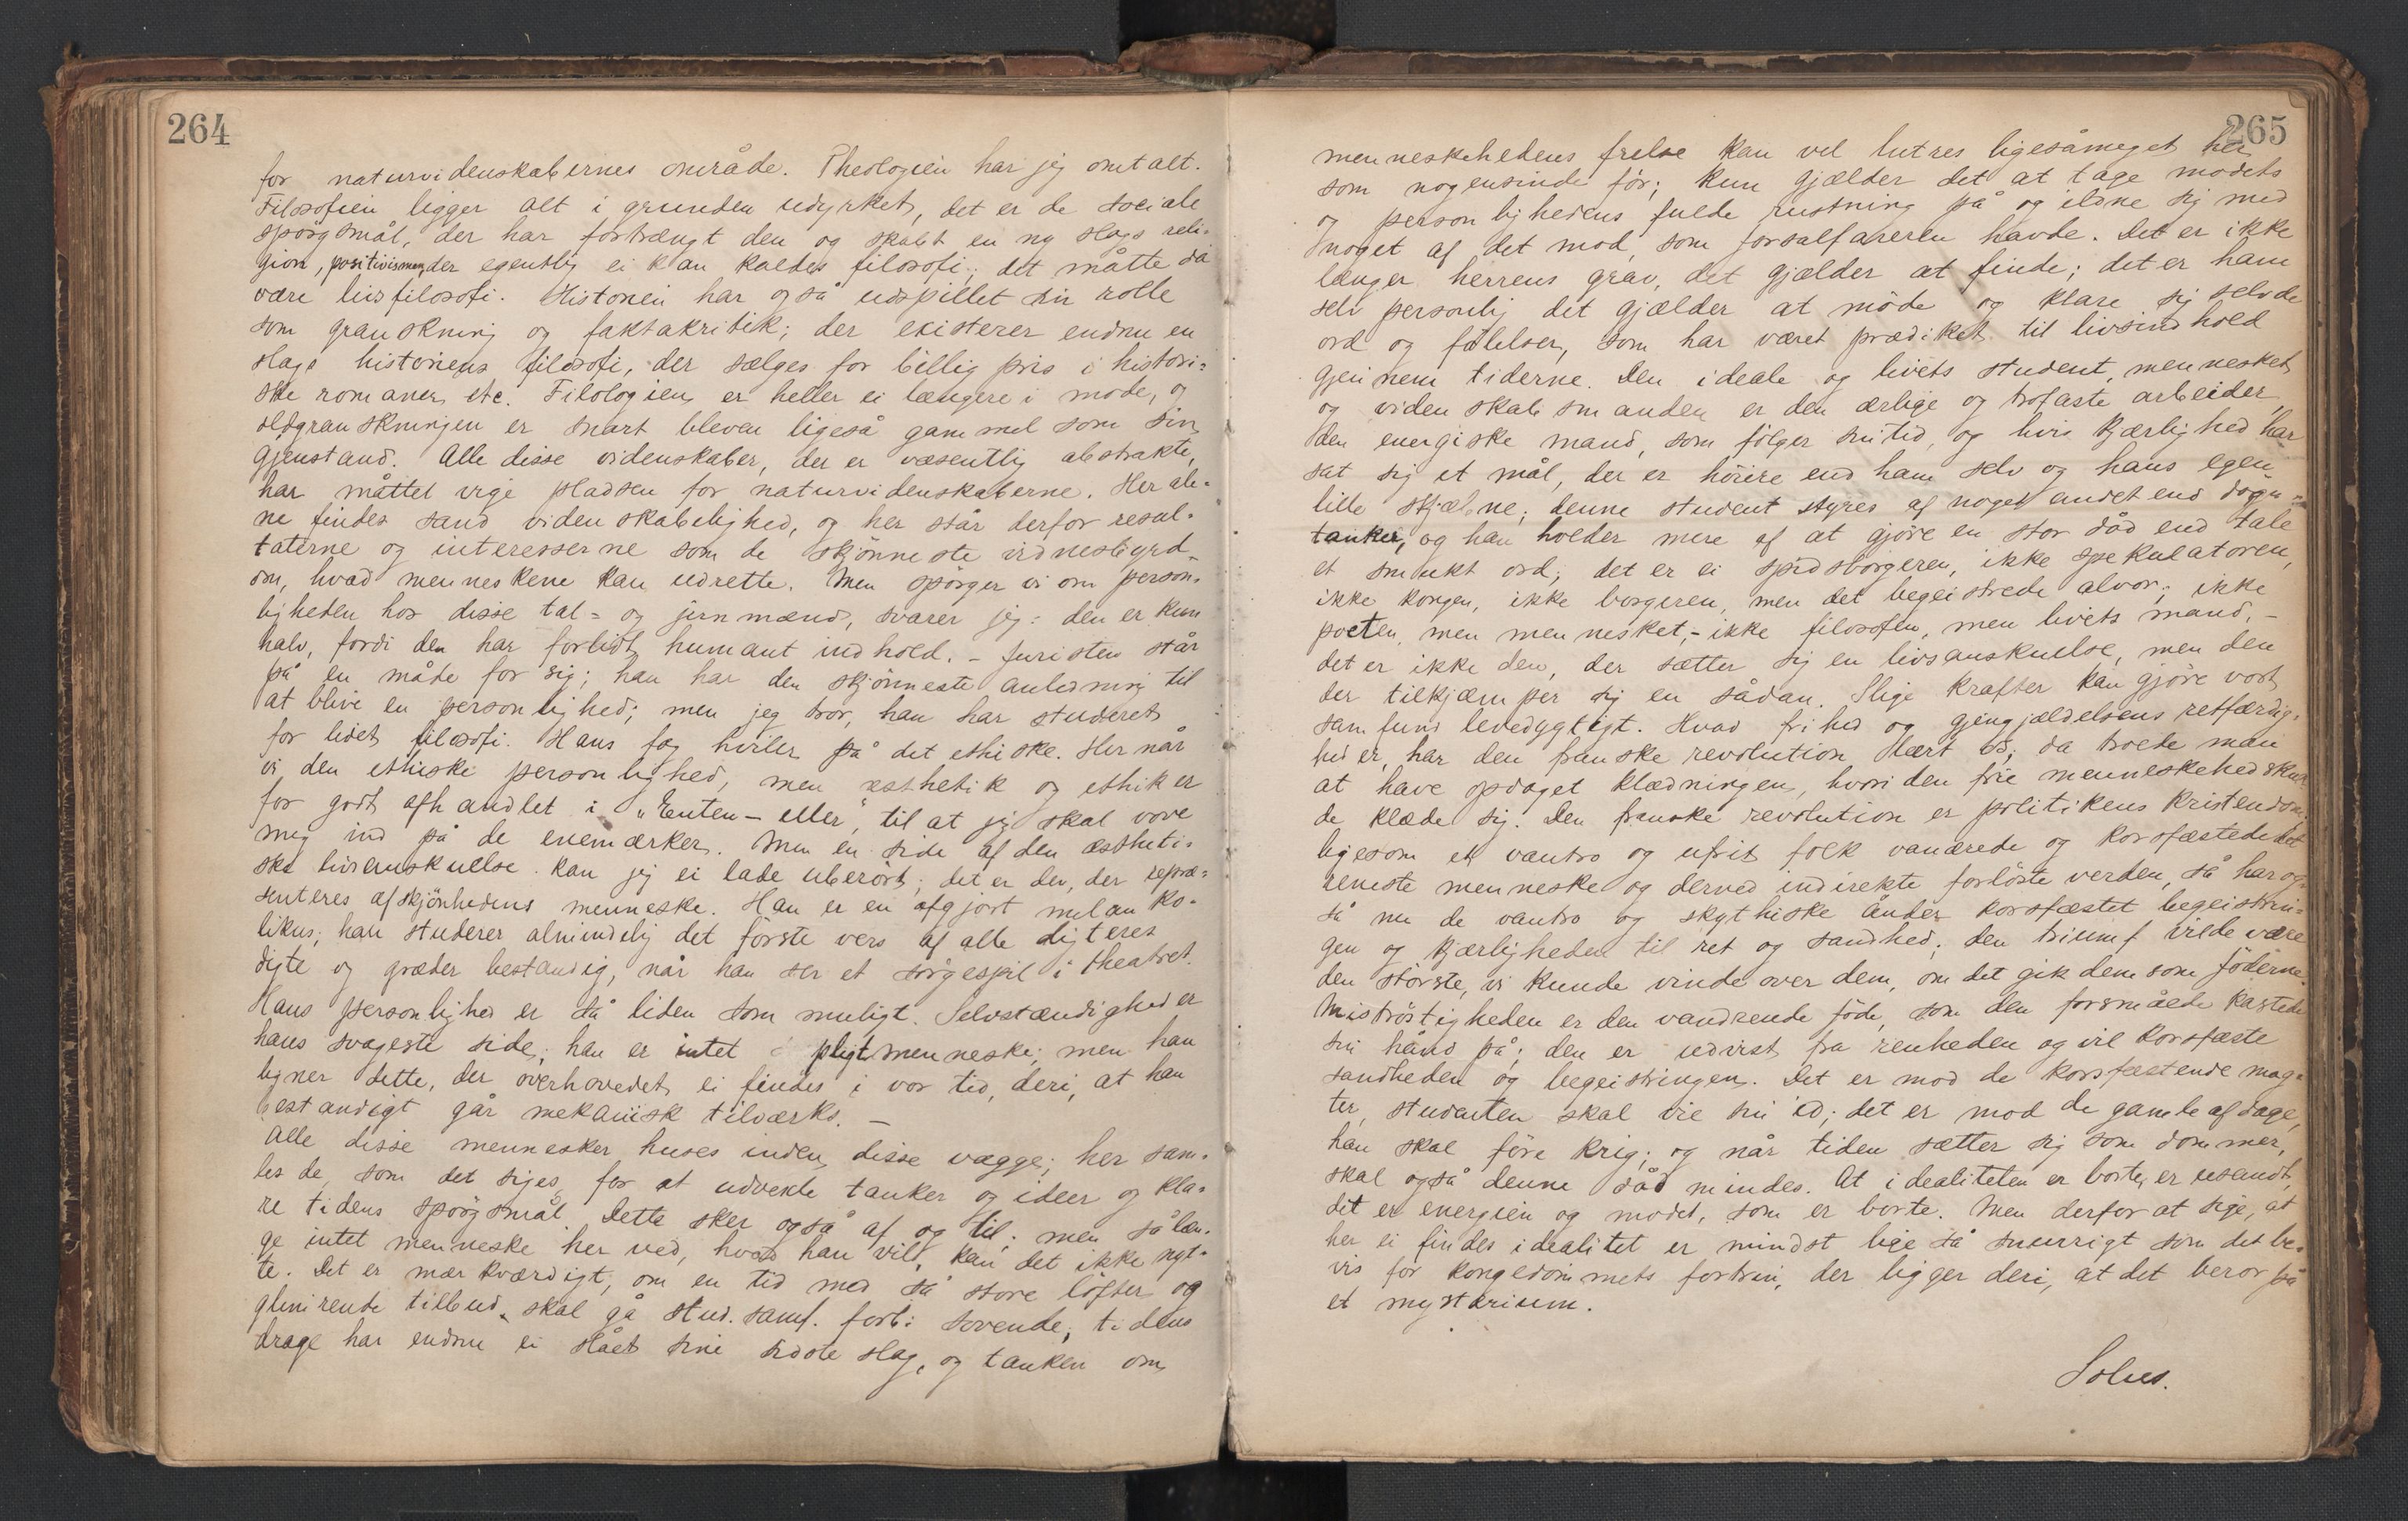 264
for naturvidenskabernes område. Theologien har jeg omtalt.
Filosofien ligger alt i grunden udyrket, det er de sociale
spörgsmål, der har fortrængt den og skabt en ny slags reli-
gion, positivismen, der egentlig ei kan kaldes filosofi; det måtte da
være livsfilosofi. Historien har også udspillet sin rolle
som granskning og faktakritik; der existerer endnu en
slags historiens filosofi, der sælges for billig pris i histori-
ske romaner etc. Filologien er heller ei længere i mode, og
oldgranskningen er snart bleven ligeså gammel som sin
gjenstand. Alle disse videnskaber, der er væsentlig abstrakte,
har måttet vige pladsen for naturvidenskaberne. Her ale-
ne findes sand videnskabelighed, og her står derfor resul-
taterne og interesserne som de skjönneste vidnesbyrd
om, hvad menneskene kan udrette. Men spörger vi om person-
ligheden hos disse tal- og jernmænd, svarer jeg: den er kun
halv, fordi den har forlidt humant indhold. - Juristen står
på en måde for sig; han har den skjönneste anledning til
at blive en personlighed; men jeg tror, han har studeret
for lidet filosofi. Hans fag hviler på det ethiske. Her når
vi den ethiske personlighed, men æsthetik og ethik er
for godt afhandlet i "Enten - eller", til at jeg skal vove
mig ind på de enemærker. Men en side af den æstheti-
ske livsanskuelse kan jeg ei lade uberört; det er den, der repræ-
senteres af skjönhedens menneske. Han er en afgjort melanko-
likus; han studerer almindelig det förste vers af alle digteres
digte og græder bestandig, når han ser et sörgespil i theatret.
Hans personlighed er så liden som muligt. Selvstændighed er
hans svageste side; han er intet pligtmenneske; men han
ligner dette, der overhovedet ei findes i vor tid, deri, at han
bestandigt går mekanisk tilværks. -
Alle disse mennesker huses inden disse vægge; her sam-
les de, som det siges, for at udvexle tanker og ideer og kla-
re tidens spörgsmål. Dette sker også af og til; men sålæn-
ge intet menneske her ved, hvad han vil, kan det ikke nyt-
te. Det er mærkværdigt, om en tid med så store löfter og
glimrende tilbud skal gå stud. samf. forbi sovende; tidens
drage har endnu ei slået sine sidste slag, og tanken om
265
menneskehedens frelse kan vel lutres ligesåmeget her
som nogensinde för; kun gjælder det at tage modets
og personlighedens fulde rustning på og ildne sig med
noget af det mod, som jorsalfarerne havde. Det er ikke
længer herrens grav, det gjælder at finde; det er ham
selv personlig det gjælder at möde og klare sig selv de
ord og fölelser, som har været prædiket til livsindhold
gjennem tiderne. Den ideale og livets student, mennesket
og videnskabsmanden er den ærlige og trofaste arbeider,
den energiske mand, som fölger sin tid, og hvis kjærlighed har
sat sig et mål, der er höiere end ham selv og hans egen
lille skjæbne; denne student styres af noget andet end dögn-
tanker, og han holder mere af at gjöre en stor dåd end tale
et smukt ord; det er ei spidsborgeren, ikke spekulatoren,
ikke kongen, ikke borgeren, men det begeistrede alvor; ikke
poeten, men mennesket, - ikke filosofen, men livets mand, -
det er ikke den, der sætter sig en livsanskuelse, men den
der tilkjæmper sig en sådan. Slige kræfter kan gjöre vort
samfund levedygtigt. Hvad frihed og gjengjældelsens retfærdig-
hed er, har den franske revolution lært os; da troede man
at have opdaget klædningen, hvori den frie menneskehed skul-
de klæde sig. Den franske revolution er politikens kristendom;
ligesom et vantro og ufrit folk vanærede og korsfæstede det
reneste menneske og derved indirekte forlöste verden, så har og-
så nu de vantro og skythiske ånder korsfæstet begeistrin-
gen og kjærligheden til ret og sandhed; den triumf vilde være
den störste, vi kunde vinde over dem, om det gik dem som jöderne.
Miströstigheden er den vandrende jöde, som den forsmåede kastede
sin hånd på; den er udvist fra renheden og vil korsfæste
sandheden og begeistringen. Det er mod de korsfæstende mag-
ter, studenten skal vie sin ed; det er mod de gamle af dage,
han skal före krig; og når tiden sætter sig som dommer,
skal også denne dåd mindes. At idealiteten er borte, er usandt,
det er energien og modet, som er borte. Men derfor at sige, at
her ei findes idealitet er mindst lige så snurrigt som det be-
vis for kongedömmets fortrin, der ligger deri, at det beror på
et mysterium.
Solus.